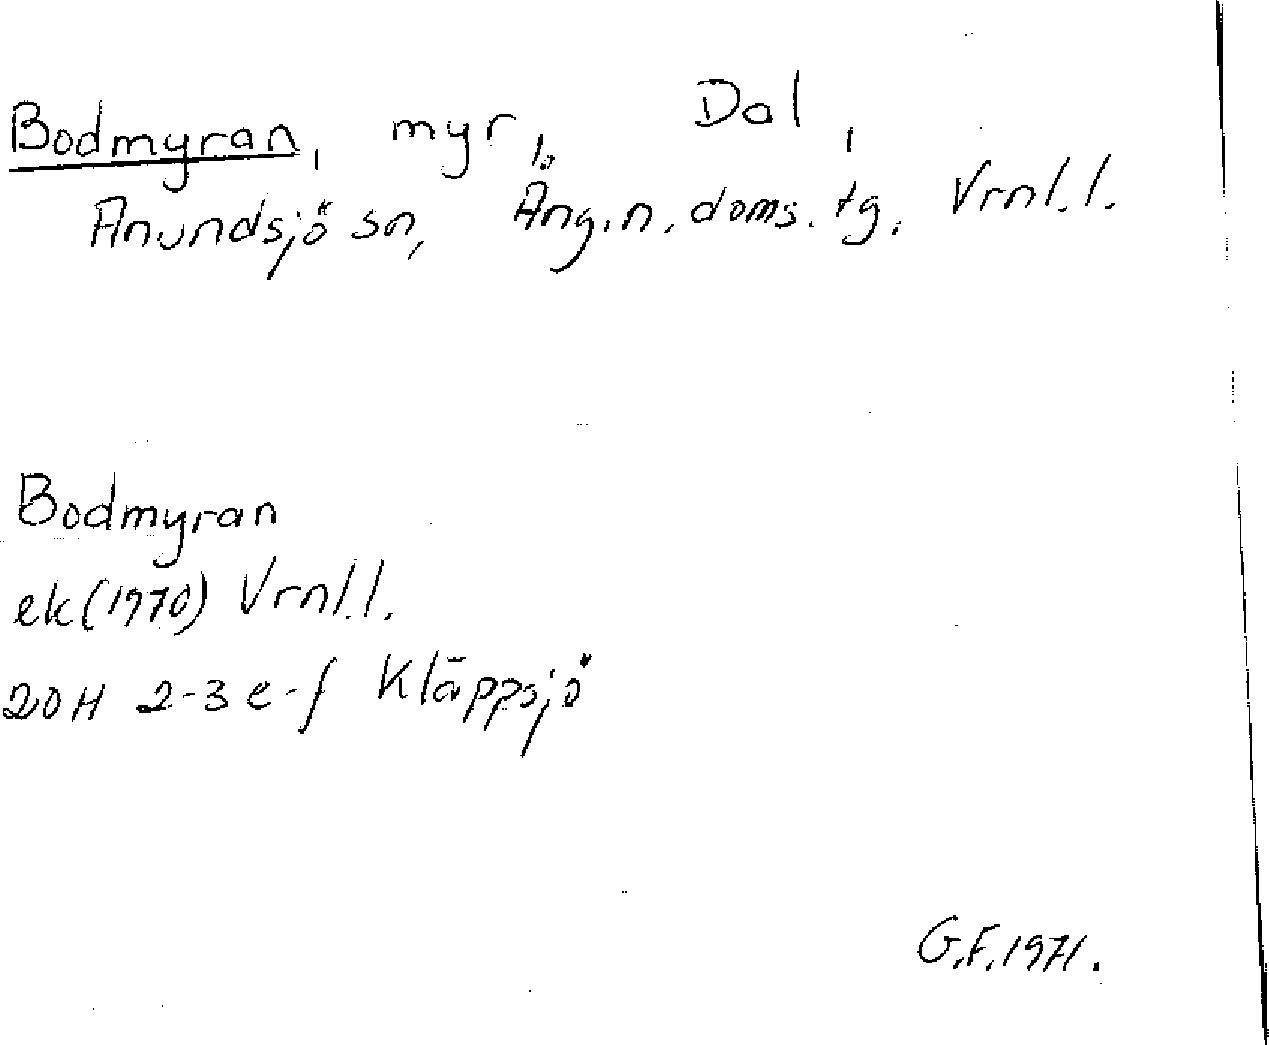 Bodmyran, myr, Dal,
Anundsjö sn, Ång.n. doms. tg. Vrnl.l.
Bodmyran
ek (1970) Vrnl.l.
20H 2-3 e-f Kläppsjö
G.F. 1971.